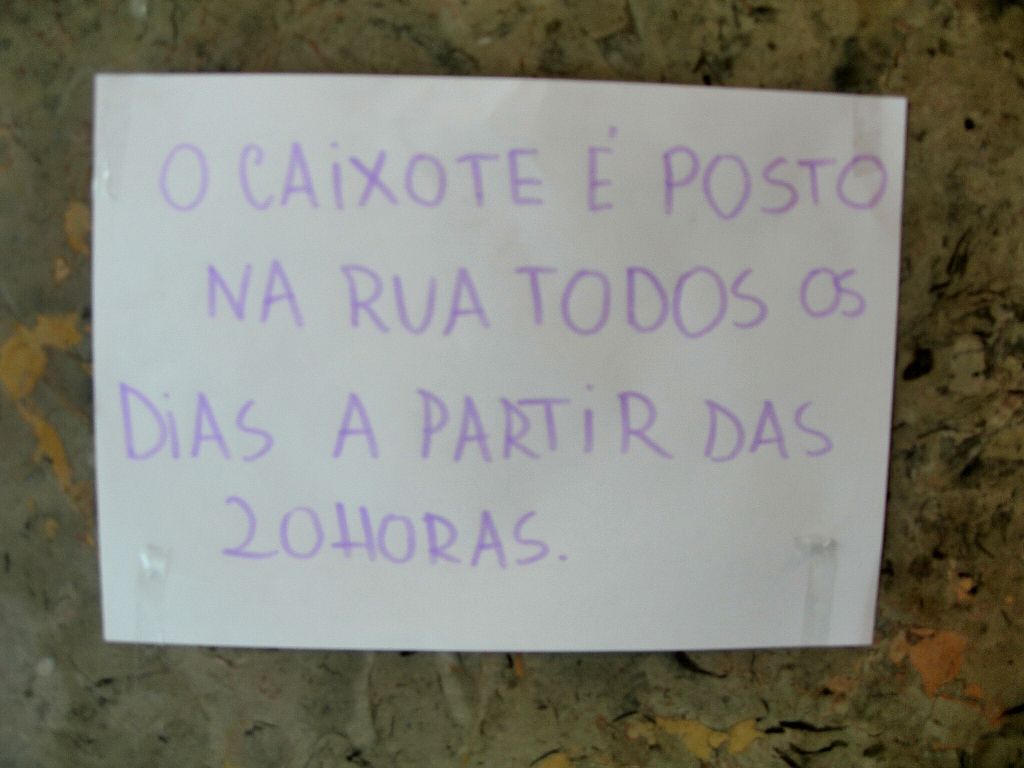 O CAiXOTE É POSTO
NA RUA TODOS OS
DiAS A PARTiR DAS
20HORAS.